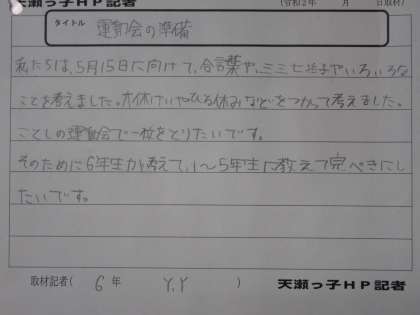 天瀬っ子HP記者
(令和2年　月　日取材)
タイトル 運動会の準備
私たちは、5月15日に向けて、合言葉や、ミニ七社子やいろいろな
ことを考えました。大休けいやひる休みなどをつかって考えました。
ことしの運動会で一位をとりたいです。
そのために6年生が考えて、1〜5年生に教えて完ぺきにし
たいです。
取材記者( 6年 Y.Y )
天瀬っ子HP記者